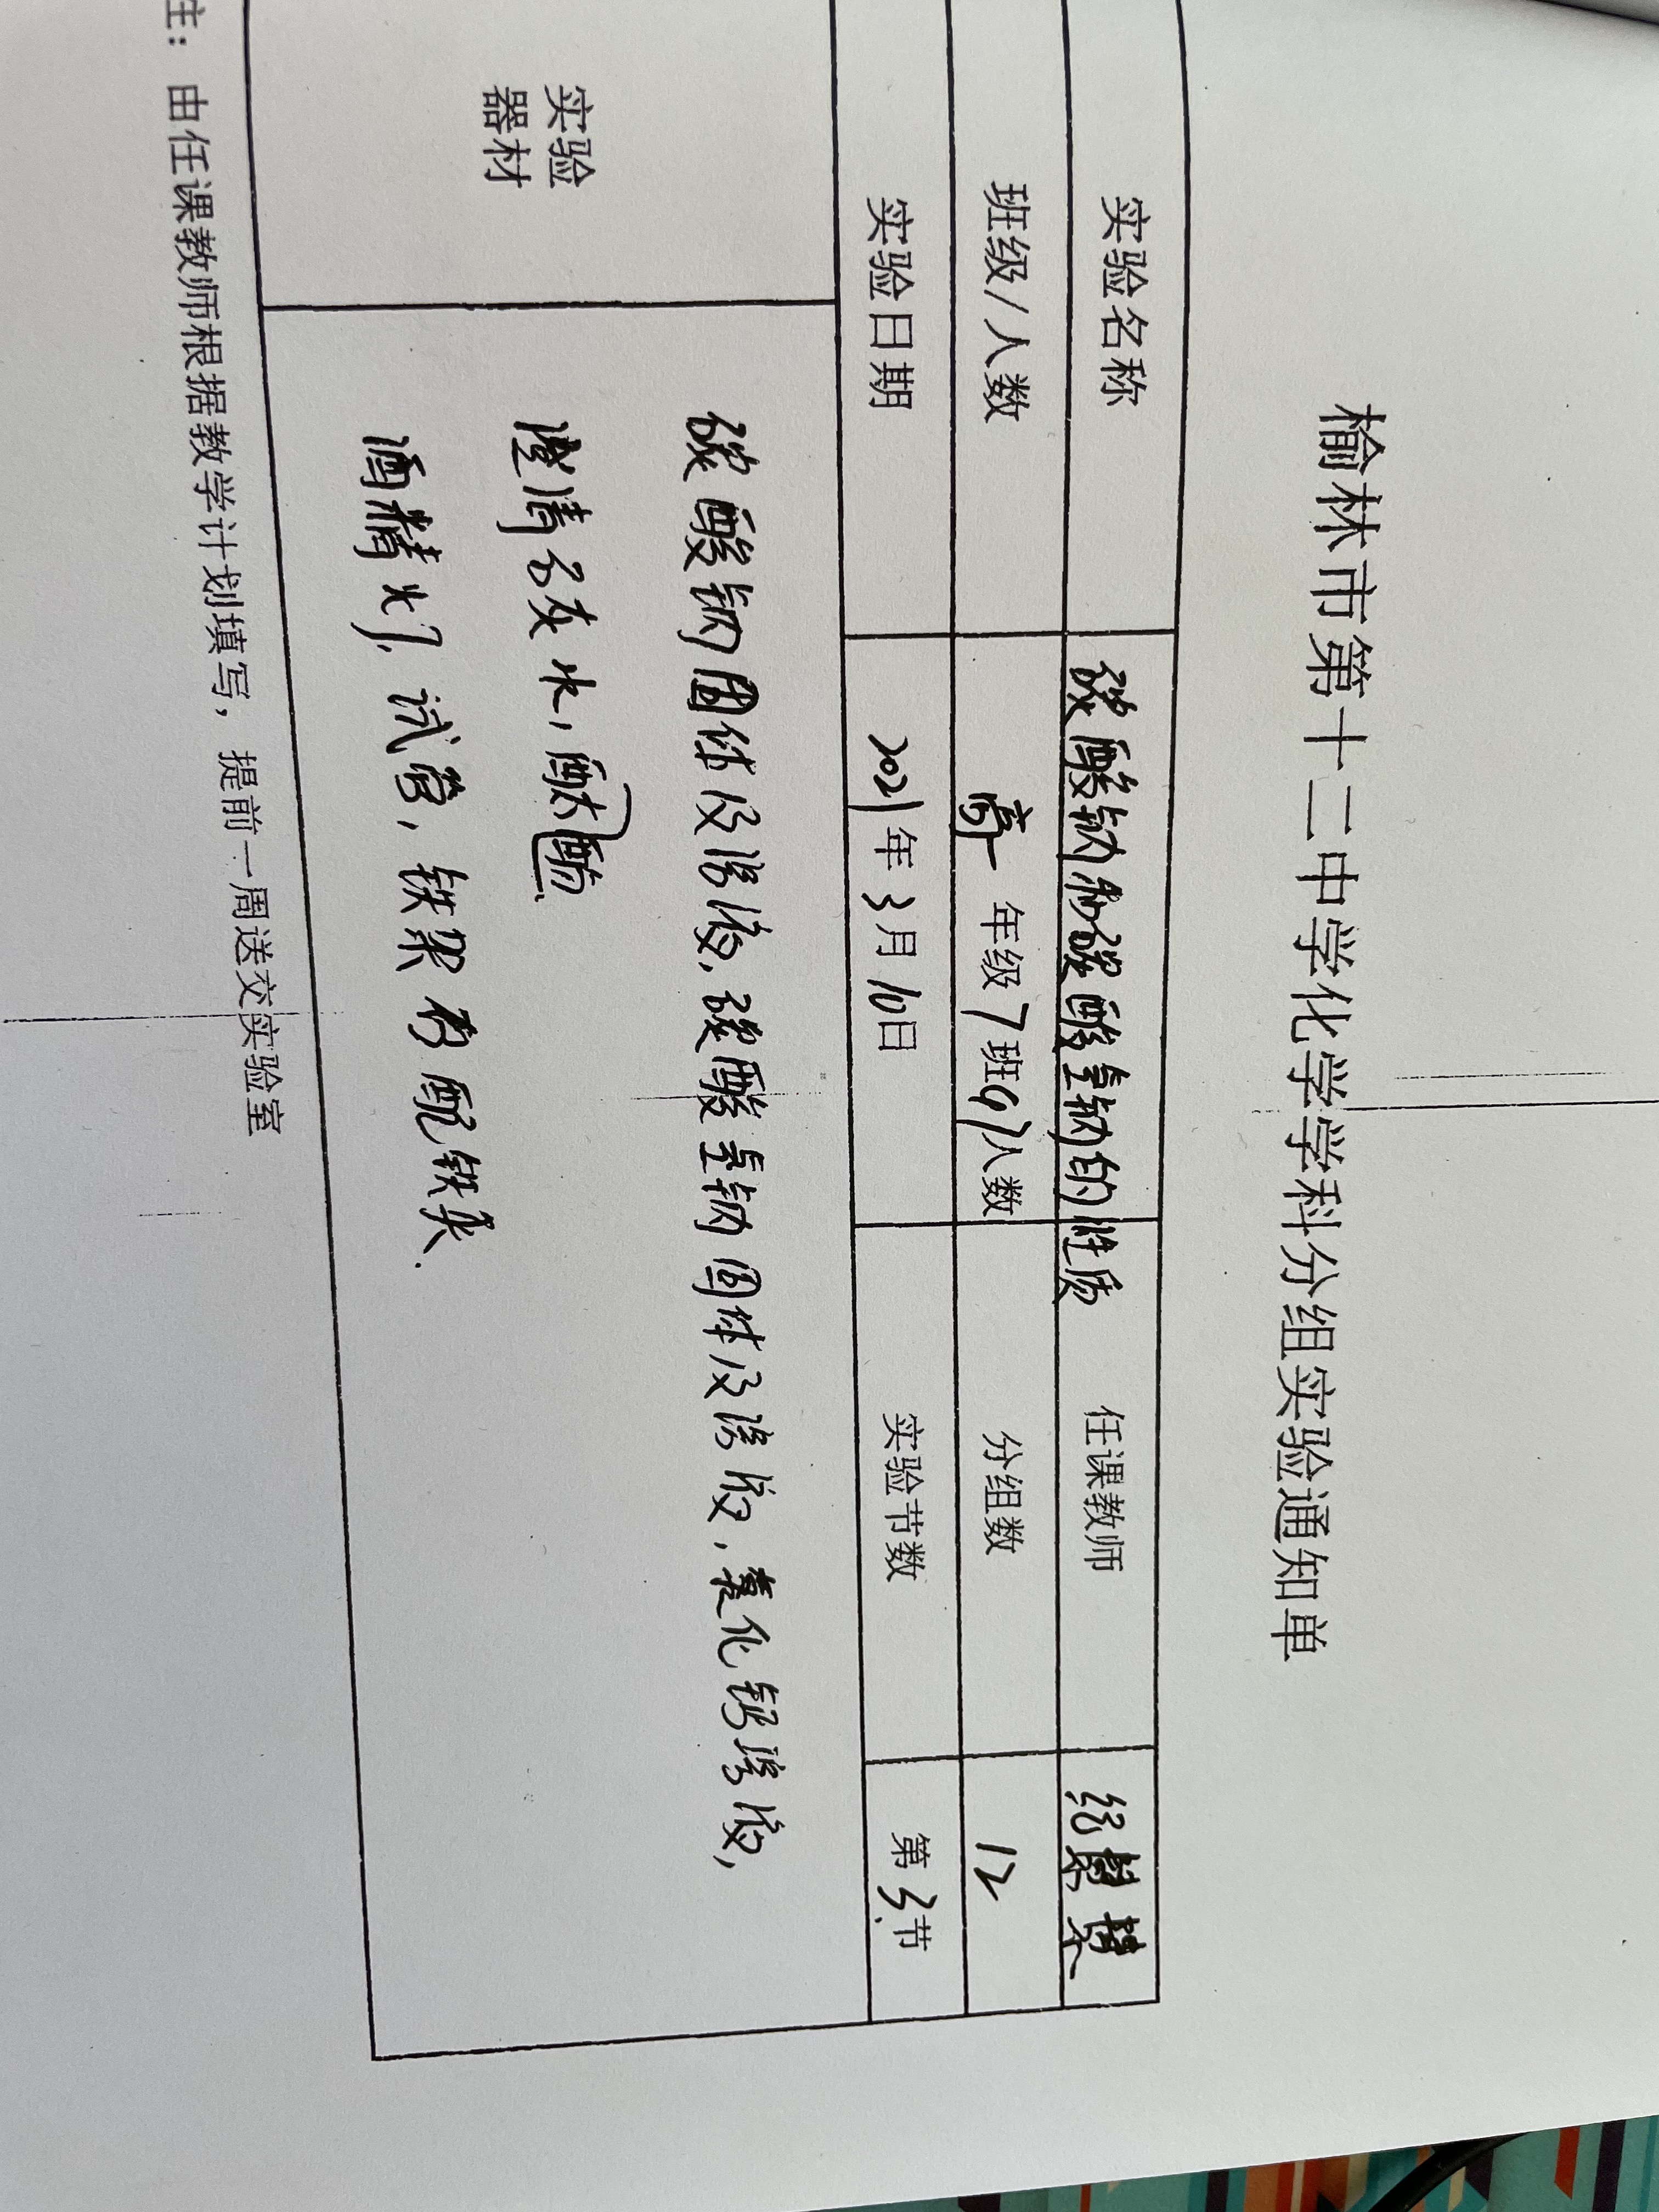 榆林市第十二中学化学学科分组实验通知单
实验名称 碳酸钠和碳酸氢钠的性质 任课教师
班级/人数 高一 年级 7 班 人数 分组数 12
实验日期 2021 年 3 月 10 日 实验节数 第 3 节
实验
器材
碳酸钠固体及溶液,碳酸氢钠固体及溶液,氯化钙溶液,
澄清石灰水,酚酞
酒精灯,试管,铁架台配铁夹.
注:由任课教师根据教学计划填写,提前一周送交实验室